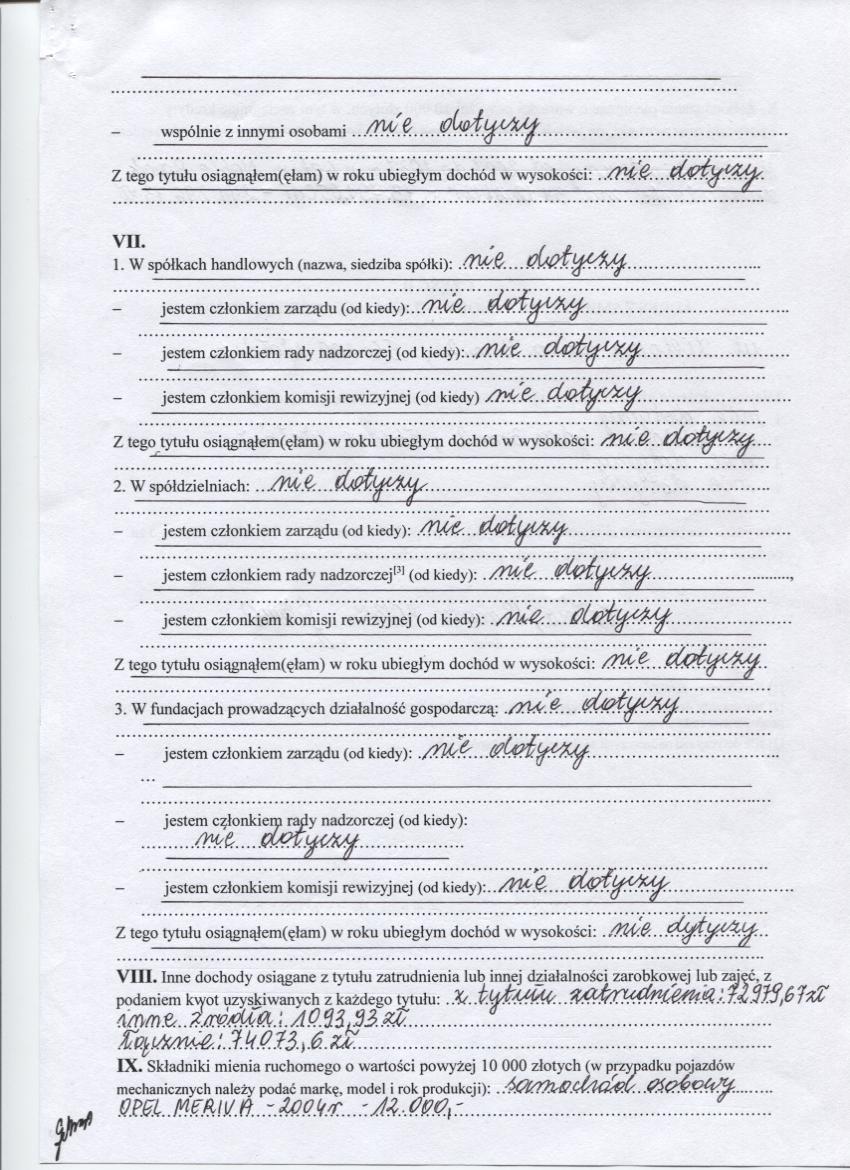 – wspólnie z innymi osobami nie dotyczy
Z tego tytułu osiągnąłem(ęłam) w roku ubiegłym dochód w wysokości: nie dotyczy
VII.
1. W spółkach handlowych (nazwa, siedziba spółki): nie dotyczy
– jestem członkiem zarządu (od kiedy): nie dotyczy
– jestem członkiem rady nadzorczej (od kiedy): nie dotyczy
– jestem członkiem komisji rewizyjnej (od kiedy) nie dotyczy
Z tego tytułu osiągnąłem(ęłam) w roku ubiegłym dochód w wysokości: nie dotyczy
2. W spółdzielniach: nie dotyczy
– jestem członkiem zarządu (od kiedy): nie dotyczy
– jestem członkiem rady nadzorczej[3] (od kiedy): nie dotyczy
– jestem członkiem komisji rewizyjnej (od kiedy): nie dotyczy
Z tego tytułu osiągnąłem(ęłam) w roku ubiegłym dochód w wysokości: nie dotyczy
3. W fundacjach prowadzących działalność gospodarczą: nie dotyczy
– jestem członkiem zarządu (od kiedy): nie dotyczy
...
– jestem członkiem rady nadzorczej (od kiedy):
nie dotyczy
– jestem członkiem komisji rewizyjnej (od kiedy): nie dotyczy
Z tego tytułu osiągnąłem(ęłam) w roku ubiegłym dochód w wysokości: nie dytyczy
VIII. Inne dochody osiągane z tytułu zatrudnienia lub innej działalności zarobkowej lub zajęć, z
podaniem kwot uzyskiwanych z każdego tytułu: z tytułu zatrudnienia: 72979,67zł
inne źródła: 1093,93 zł
łącznie: 74073,6 zł
IX. Składniki mienia ruchomego o wartości powyżej 10 000 złotych (w przypadku pojazdów
mechanicznych należy podać markę, model i rok produkcji): samochód osobowy
OPEL MERIVA - 2004r - 12.000,-